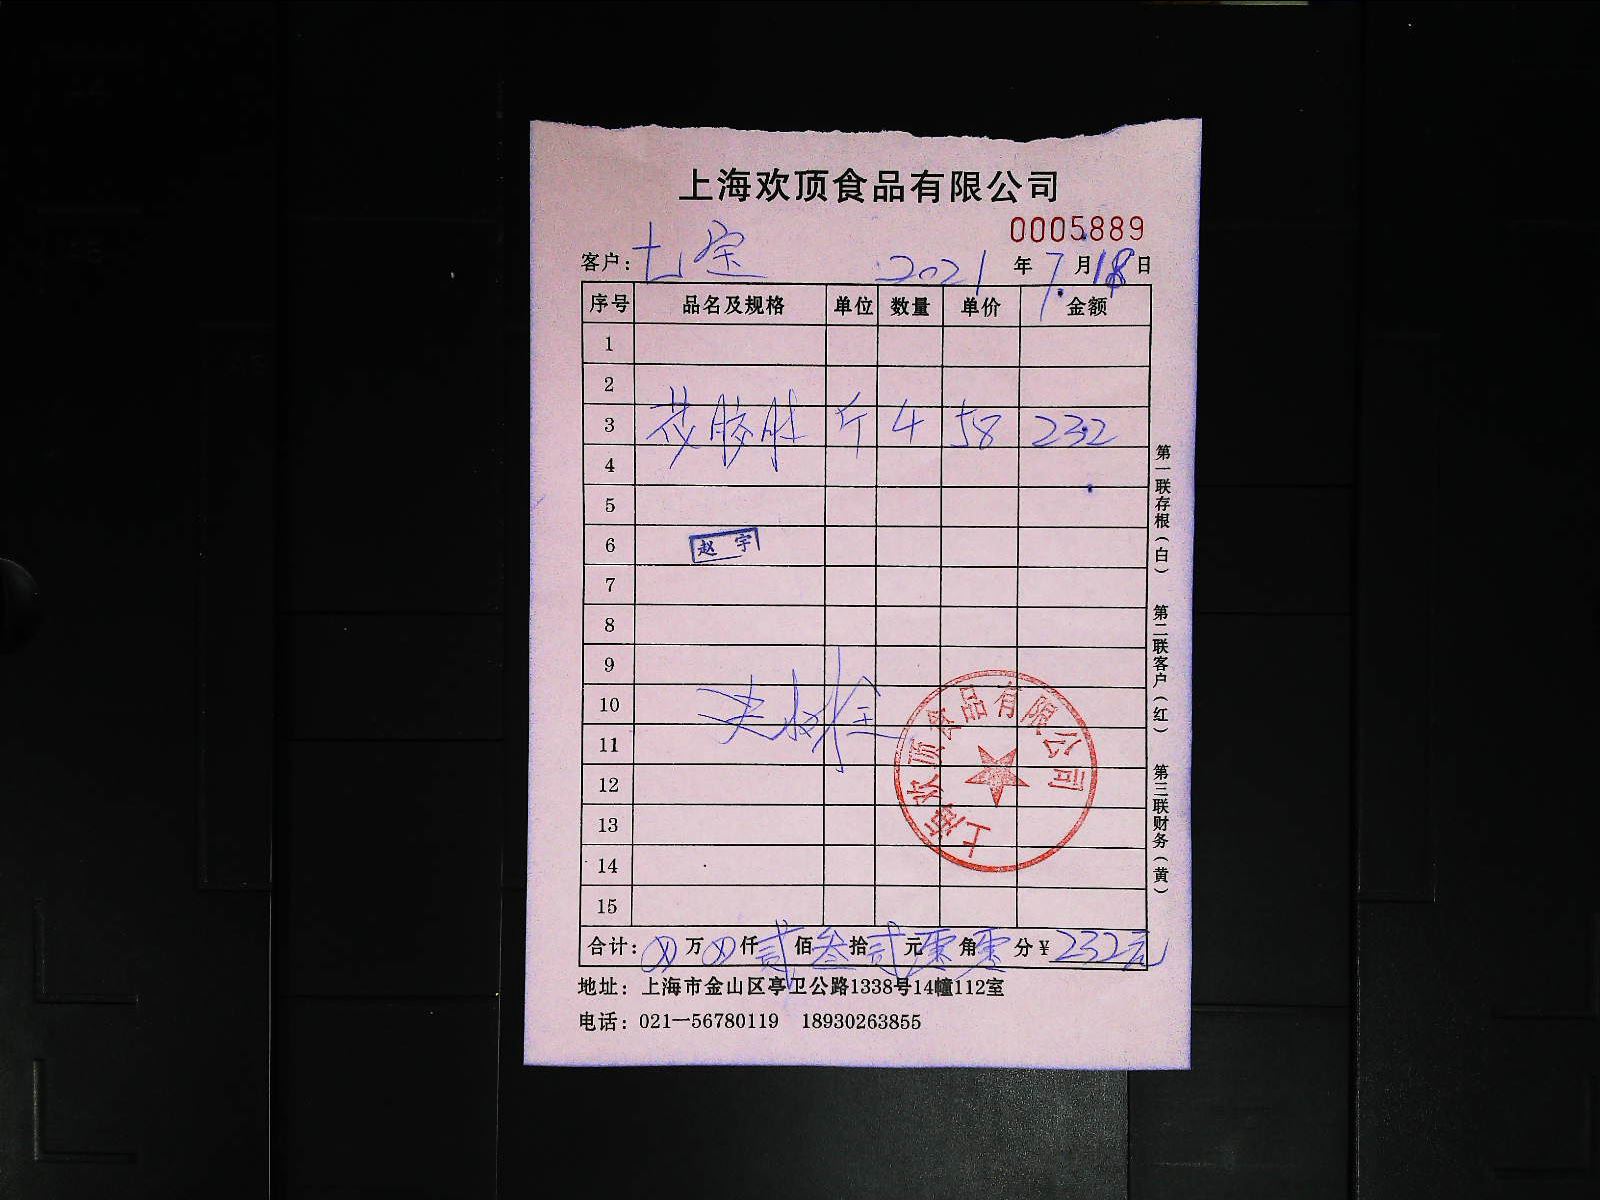 上海欢顶食品有限公司
0005889
客户：七宝 2021 年 7 月 18 日
序号 品名及规格 单位 数量 单价 金额
1
2
3 花胶肚 斤 4 58 232
4
5
6 赵宇
7
8
9
10
11
12
13
14
15
上海欢顶食品有限公司
合计：⊗万⊗仟贰佰叁拾贰元零角零分¥232元
地址：上海市金山区亭卫公路1338号14幢112室
电话：021—56780119 18930263855
第一联存根（白） 第二联客户（红） 第三联财务（黄）